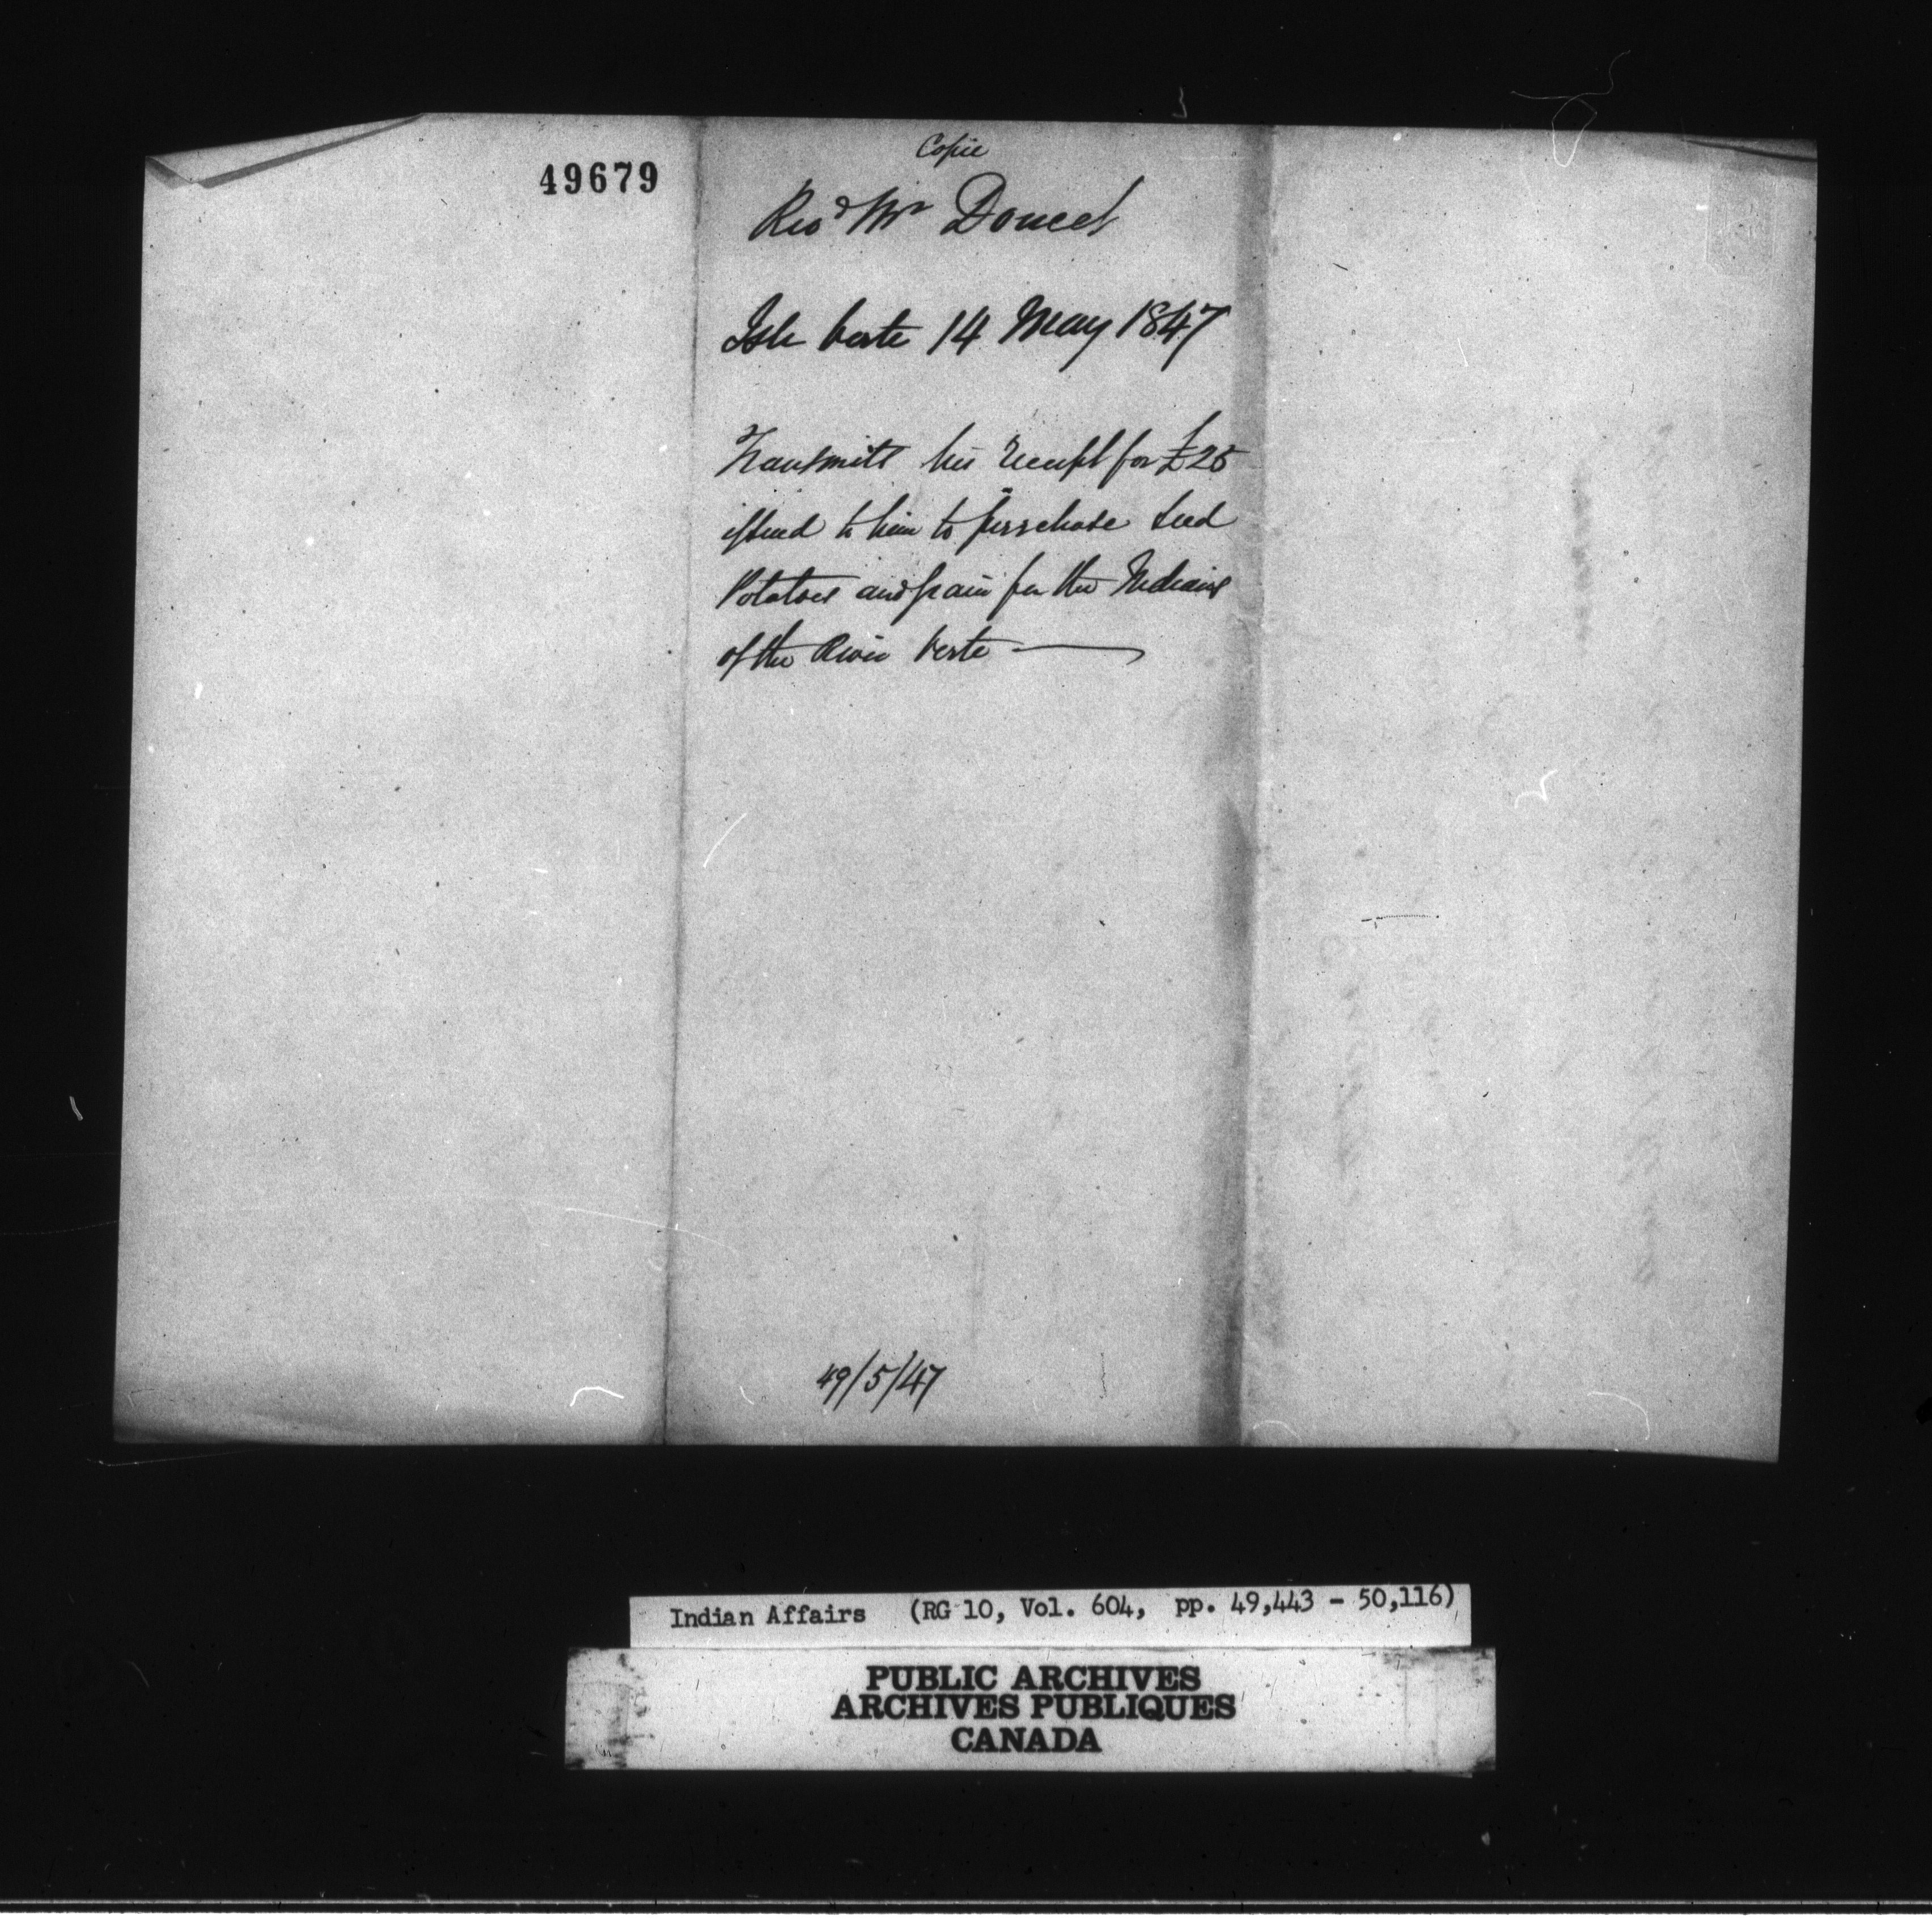 49679
Copie
Revd Mr Doucet
Isle verte 14 May 1847
Transmits his receipt for £25
issued to him to purchase seed
Potatoes and grain for the Indians
of the River Verte
49/5/47
Indian Affairs (RG 10, Vol. 604, pp. 49,443 - 50,116)
PUBLIC ARCHIVES
ARCHIVES PUBLIQUES
CANADA